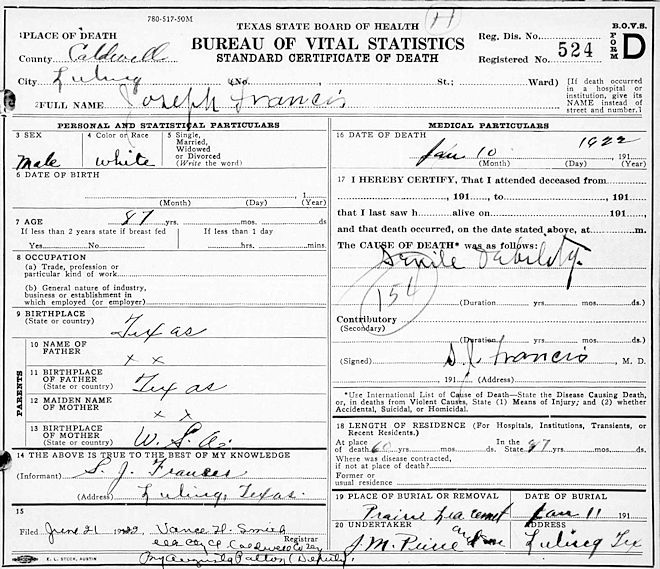 780-517-50M
H
TEXAS STATE BOARD OF HEALTH
BUREAU OF VITAL STATISTICS
STANDARD CERTIFICATE OF DEATH
Reg. Dis. No.
Registered No. 524
B.O.V.S.
FORM D
1 PLACE OF DEATH
County Caldwell
City Luling (No. St.; Ward)
[If death occurred in a hospital or institution, give its NAME instead of street and number.]
2 FULL NAME Joseph Francis
PERSONAL AND STATISTICAL PARTICULARS
3 SEX Male
4 Color or Race white
5 Single, Married, Widowed or Divorced (Write the word)
6 DATE OF BIRTH
, 1
(Month) (Day) (Year)
7 AGE 87 yrs. mos. ds
If less than 2 years state if breast fed
Yes No
If less than 1 day
hrs. mins.
8 OCCUPATION
(a) Trade, profession or
particular kind of work
(b) General nature of industry,
business or establishment in
which employed (or employer)
9 BIRTHPLACE
(State or country) Texas
PARENTS
10 NAME OF
FATHER x x
11 BIRTHPLACE
OF FATHER Texas
(State or country)
12 MAIDEN NAME
OF MOTHER x x
13 BIRTHPLACE
OF MOTHER
(State or country)
14 THE ABOVE IS TRUE TO THE BEST OF MY KNOWLEDGE
(Informant) S. J. Frances
(Address) Luling, Texas.
15
Filed June 21 1922 Vance H. Smith
Registrar
By Augusta Patton (Deputy)
E. L. STECK, AUSTIN
MEDICAL PARTICULARS
16 DATE OF DEATH
Jan 10 1922 , 191
(Month) (Day) (Year)
17 I HEREBY CERTIFY, That I attended deceased from
, 191 , to , 191
that I last saw h alive on 191 ,
and that death occurred, on the date stated above, at m.
The CAUSE OF DEATH* was as follows:
Senile Debility.
154
(Duration) yrs. mos. ds.
Contributory
(Secondary)
(Duration) yrs. mos. ds.
(Signed) S. J. Francis , M. D.
191 (Address)
*Use International List of Cause of Death—State the Disease Causing Death, or, in deaths from Violent Causes, State (1) Means of Injury; and (2) whether Accidental, Suicidal, or Homicidal.
18 LENGTH OF RESIDENCE (For Hospitals, Institutions, Transients, or Recent Residents.)
At place of death 60 yrs. mos. ds. In the State 87 yrs. mos. ds.
Where was disease contracted,
if not at place of death?
Former or
usual residence
19 PLACE OF BURIAL OR REMOVAL
Prairie Lea
DATE OF BURIAL
Jan 11 191
20 UNDERTAKER
ADDRESS
Luling Tex